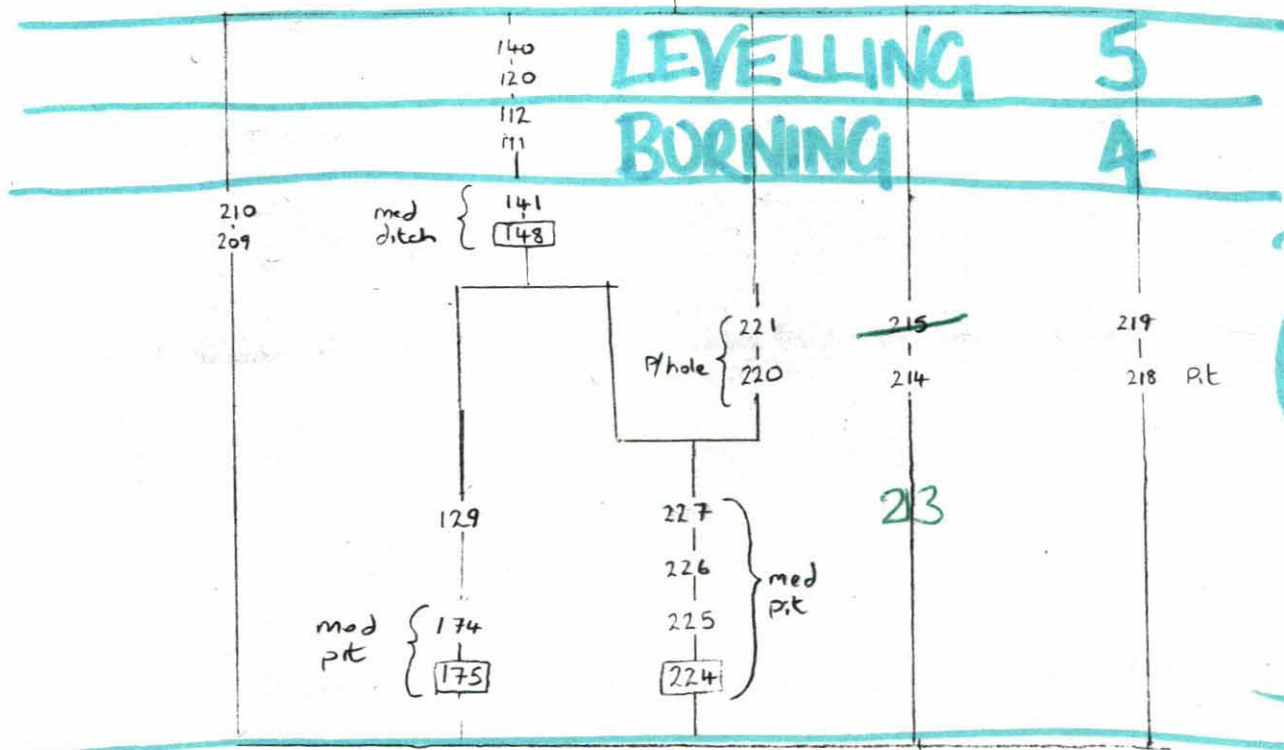 140
LEVELLING 5
120
112
111
BURNING 4
210
209
med
ditch
141
148
P/hole
221
220
215
214
219
218 Pit
129
227
226
225
224
med
pit
213
med
pit
174
175